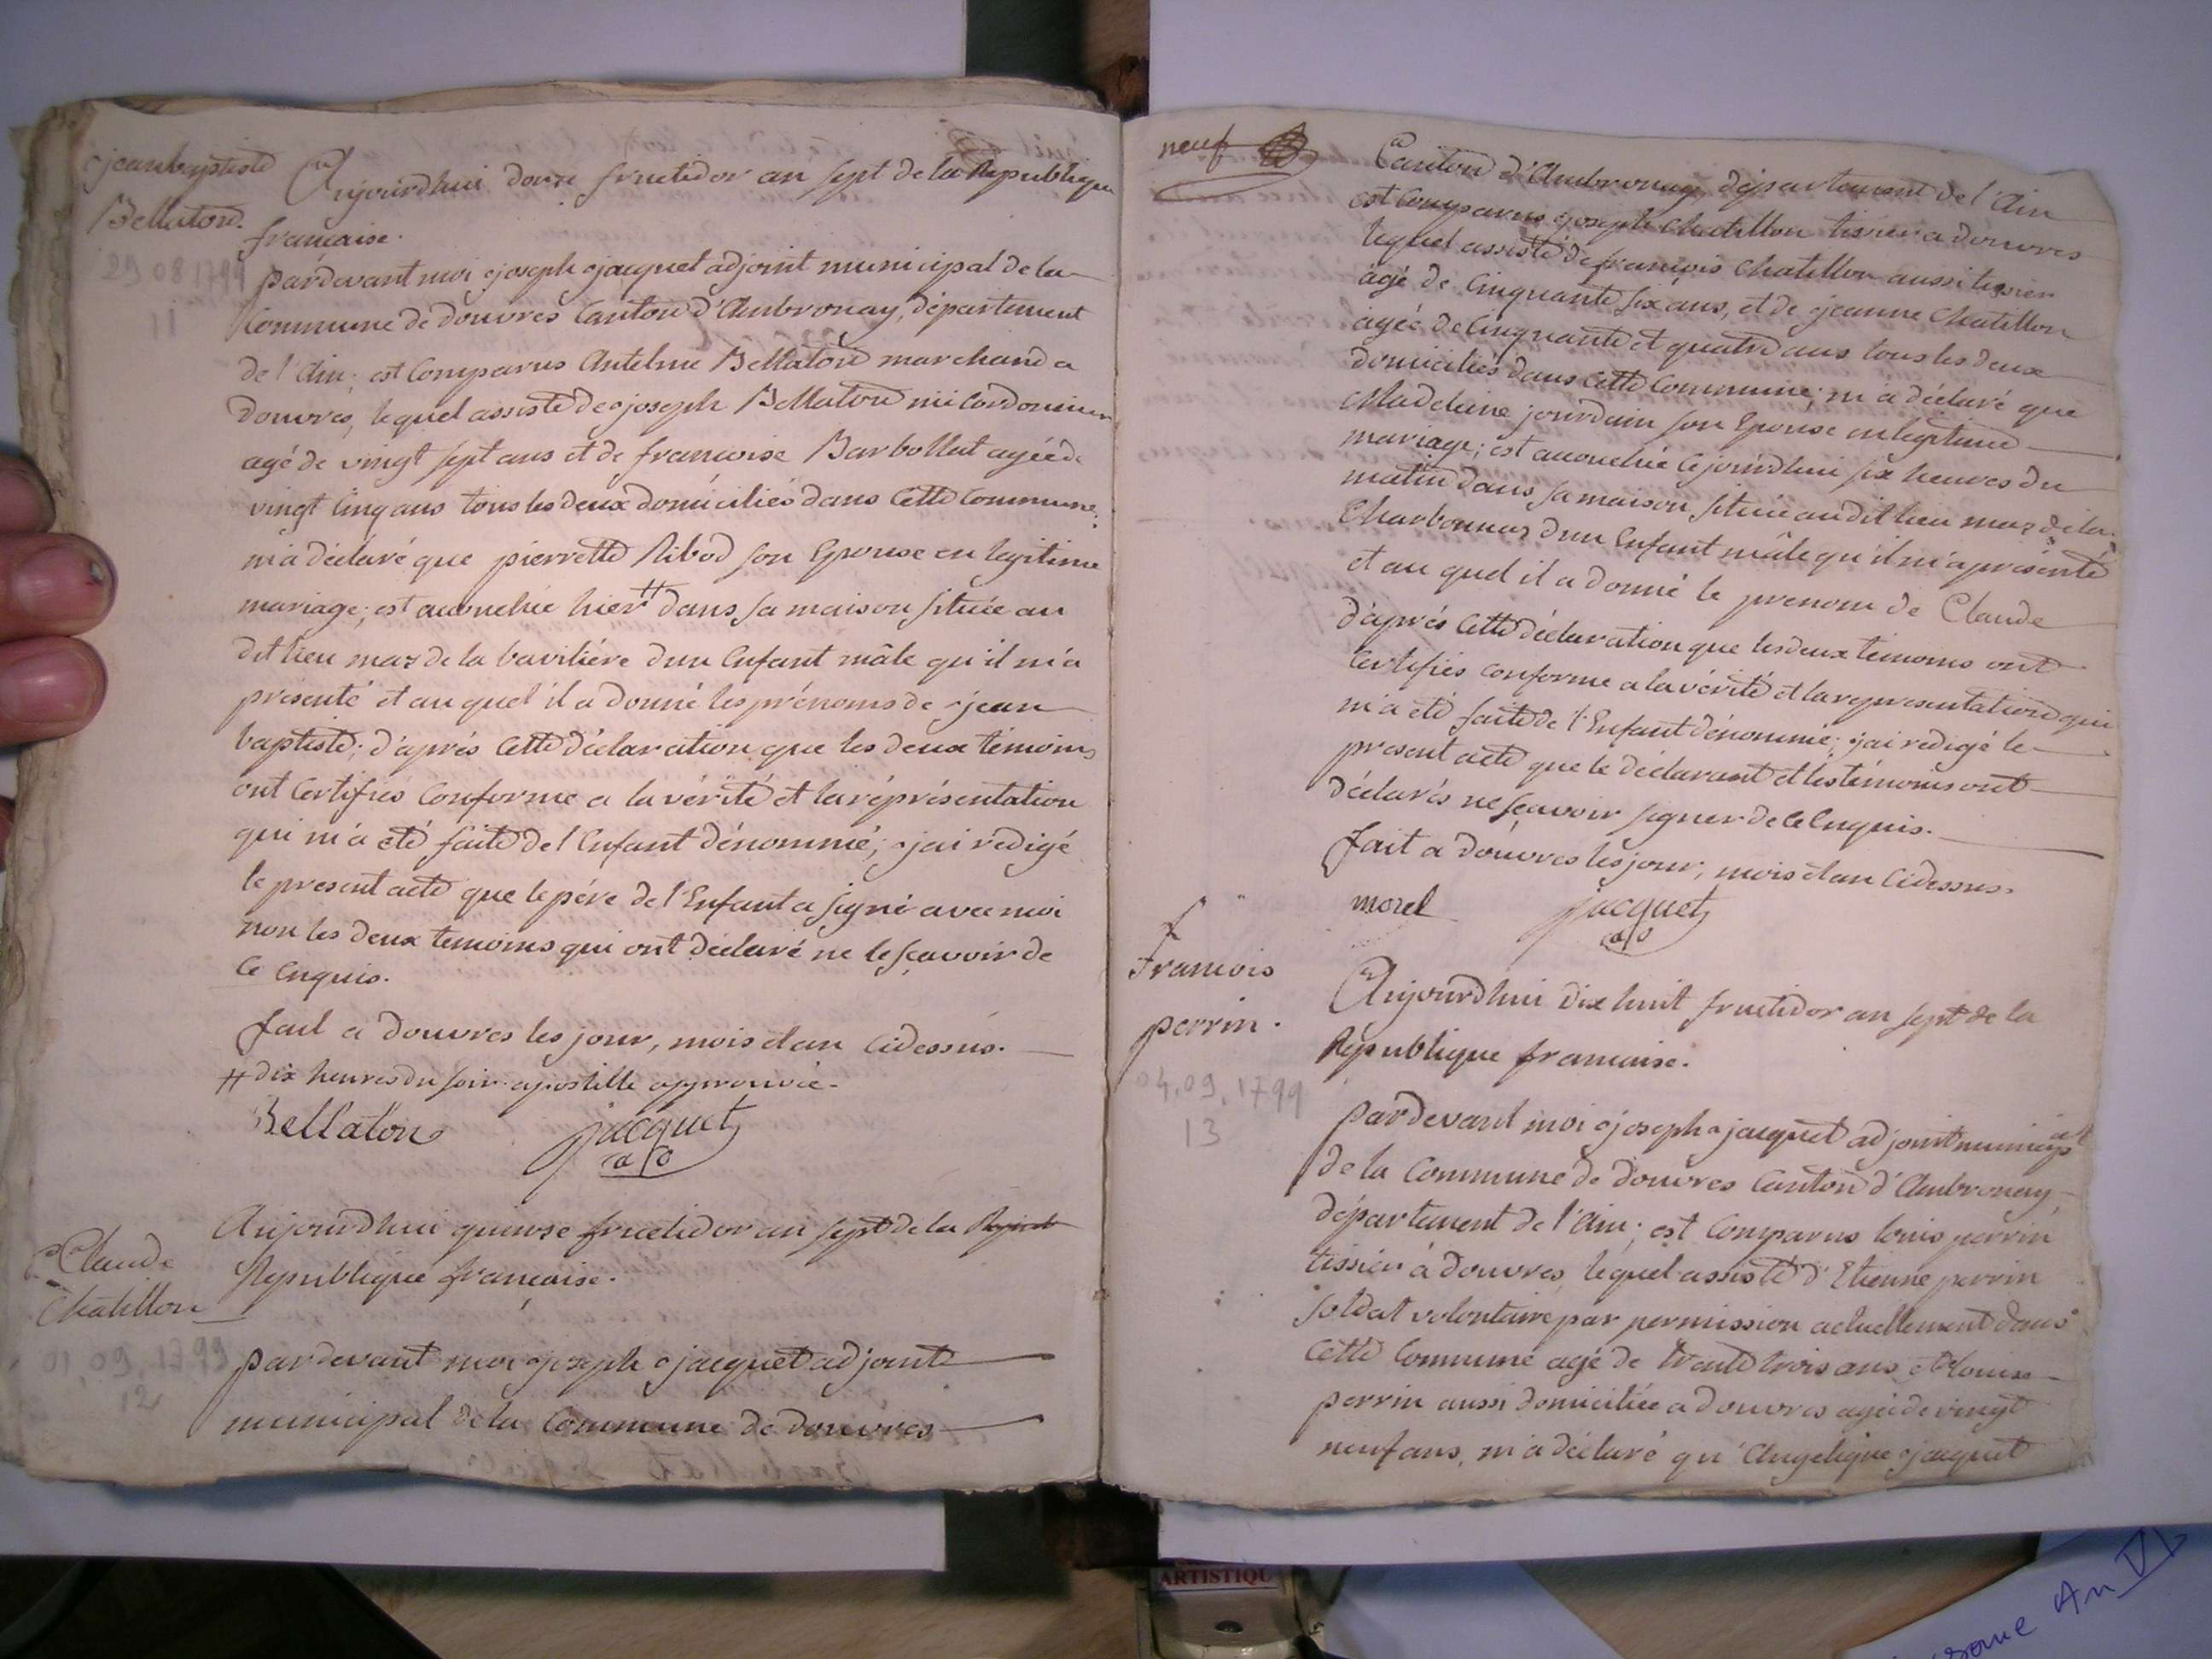 jeanbaptiste
Bellaton.
29 08 1799
11
Aujourdhui douze fructidor an sept de la Republique
française.
pardevant moi joseph jacquet adjoint municipal de la
Commune de douvres Canton d'Ambronay, département
de l'Ain; est Comparus Antelme Bellaton marchand a
douvres, lequel assisté de joseph Bellaton
agé de vingt sept ans et de francoise Barbollat agée de
vingt Cinq ans tous les deux domiciliés dans Cette Commune;
m'a déclaré que pierrette Ribod son Epouse en legitime
mariage; est accouchée hier # dans sa maison située au
dit lieu mas de la bavilière dun Enfant mâle qu'il m'a
presenté et au quel il a donné les prénoms de jean
baptiste; d'aprés Cette déclaration que les deux témoins
ont Certifiés Conforme a la vérité et la réprésentation
qui m'a eté faite de l'Enfant dénommé; j'ai redigé
le present acte que le pére de l'Enfant a signé avec moi
non les deux temoins qui ont déclaré ne le sçavoir de
Ce Enquis.
fait a douvres les jour, mois et an Cidessus.
# dix heures du soir apostille approuvée.
Bellaton jacquet
a/o
Claude
Chatillon
01.09.1799
12
Aujourdhui quinze fructidor an sept de la
Republique française.
pardevant moi joseph jacquet adjoint
municipal de la Commune de douvres
neuf
Canton d'Ambronay, département de l'Ain
est Comparus joseph Chatillon tissier a douvres
lequel assisté de françois Chatillon aussi tissier
agé de Cinquante six ans, et de jeanne Chatillon
agée de Cinquante et quatre ans tous les deux
domiciliés dans Cette Commune; m'a déclaré que
Madeleine jourdain son Epouse en legitime
mariage; est accouchée Cejourdhui six heures du
matin dans sa maison située au dit lieu mas de la
Charbonnas dun Enfant mâle qu'il m'a présenté
et au quel il a donné le prenom de Claude
d'aprés Cette déclaration que les deux témoins ont
Certifiés Conforme a la vérité et la representation qui
m'a eté faite de l'Enfant dénommé; j'ai redigé le
present acte que le déclarant et les témoins ont
déclarés ne sçavoir signer de Ce Enquis.
fait a douvres les jour, mois et an Cidessus.
morel jacquet
a/o
f
francois
perrin.
04.09.1799
13
Aujourdhui dix huit fructidor an sept de la
Republique francaise.
pardevant moi joseph jacquet adjoint municipal
de la Commune de douvres Canton d'Ambronay,
département de l'Ain; est Comparus louis perrin
tissier à douvres, lequel assisté d'Etienne perrin
soldat volontaire par permission actuellement dans
Cette Commune agé de trente trois ans et louise
perrin aussi domiciliée a douvres agée de vingt
neuf ans, m'a déclaré qu'Angelique jacquet
ARTISTIQU
An VI